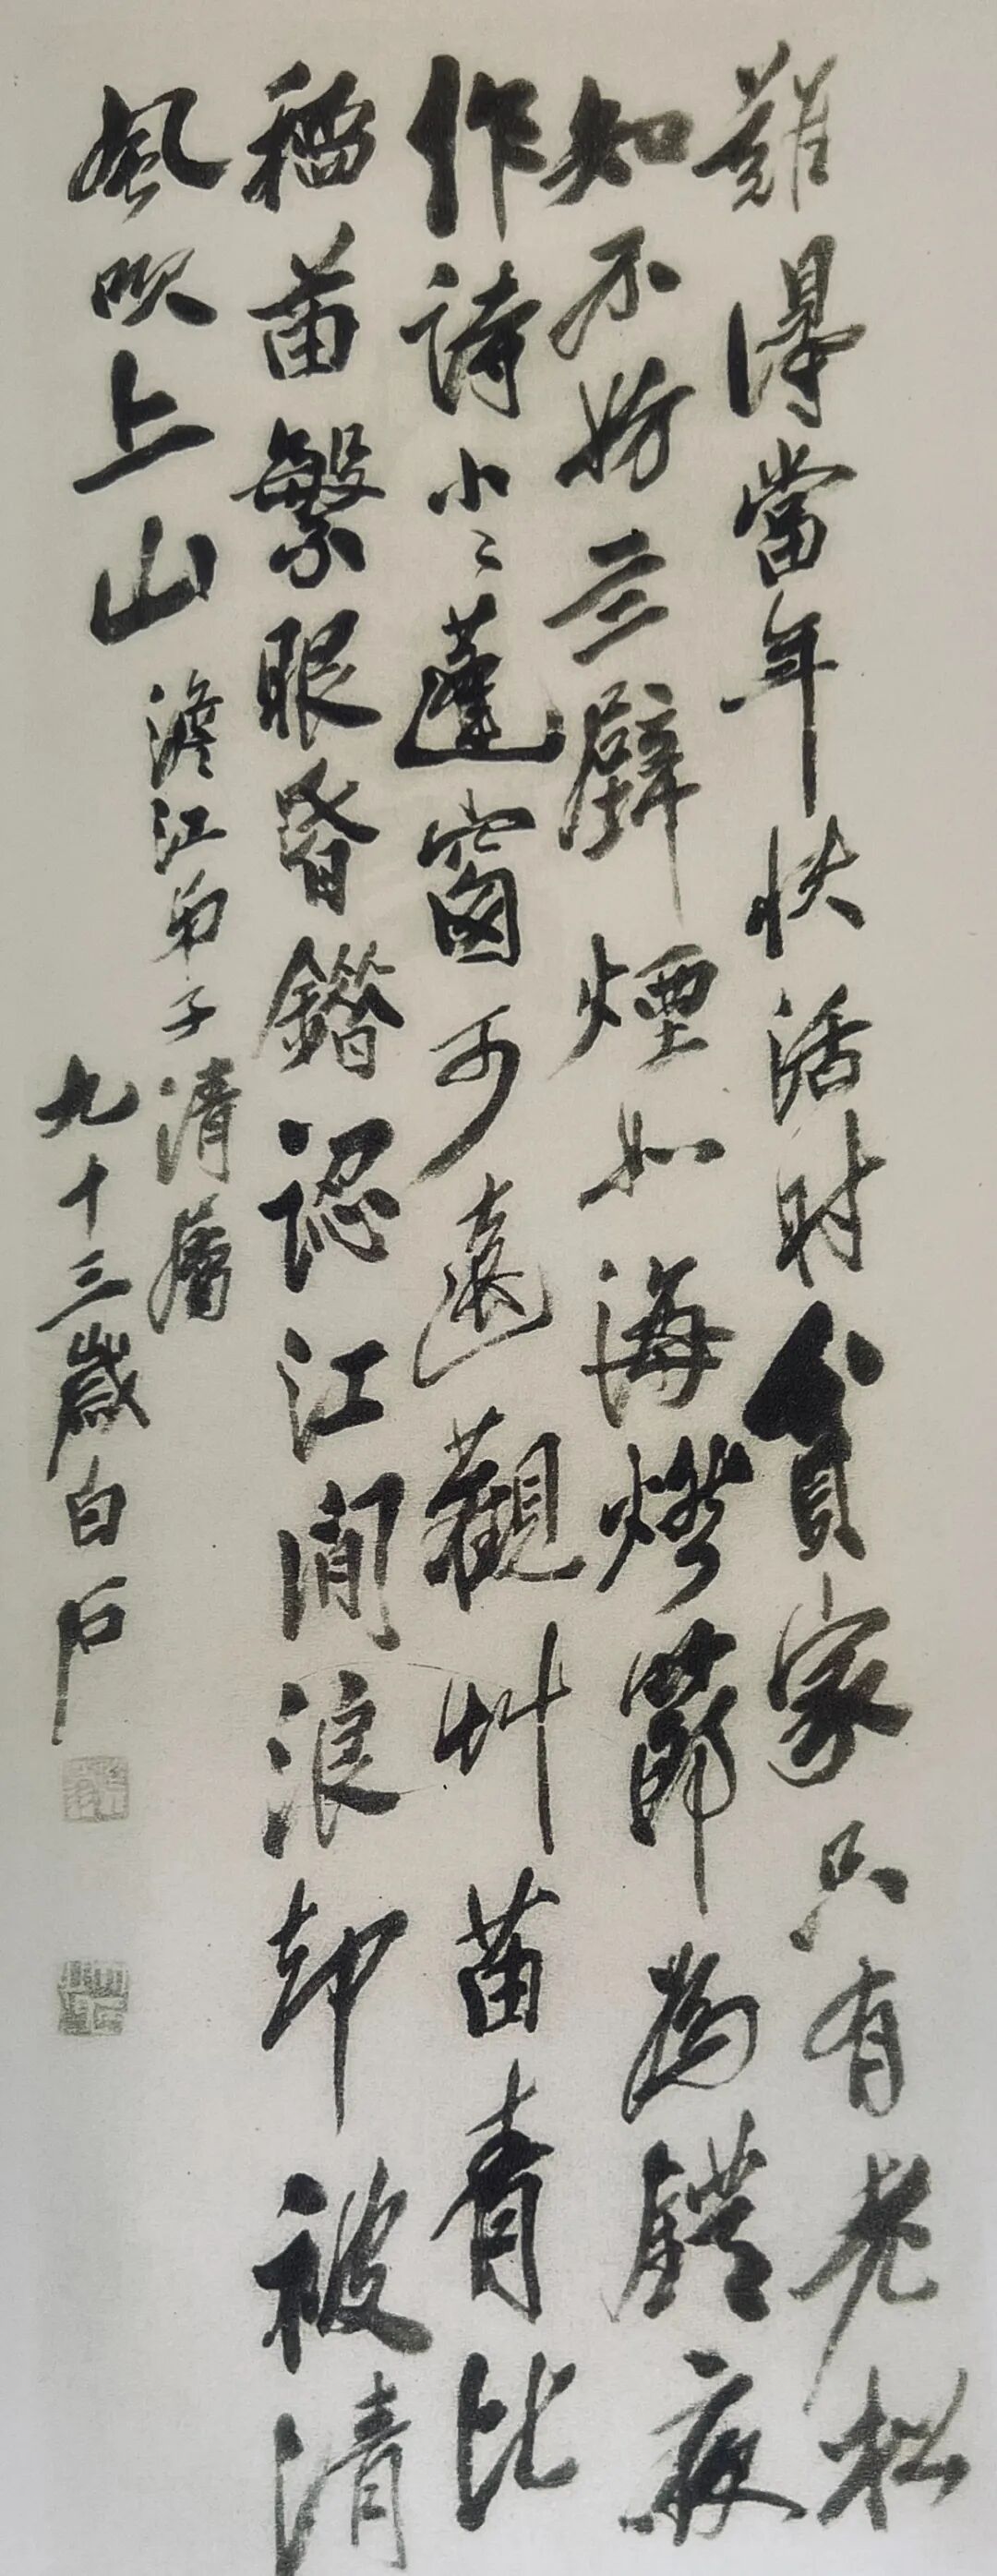 難得當年快活時貧家只有老松
知不妨亖壁煙如海燃節為鐙夜
作詩小〻蓬窗可遠觀艸苗青比
稻苗繁眼昏錯認江間浪却被清
風吹上山
澹江弟子清屬
九十三歲白石